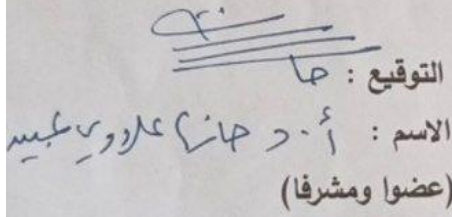 التوقيع :
الاسم : أ. د حازم علاوي عبيد
(عضوا ومشرفا)